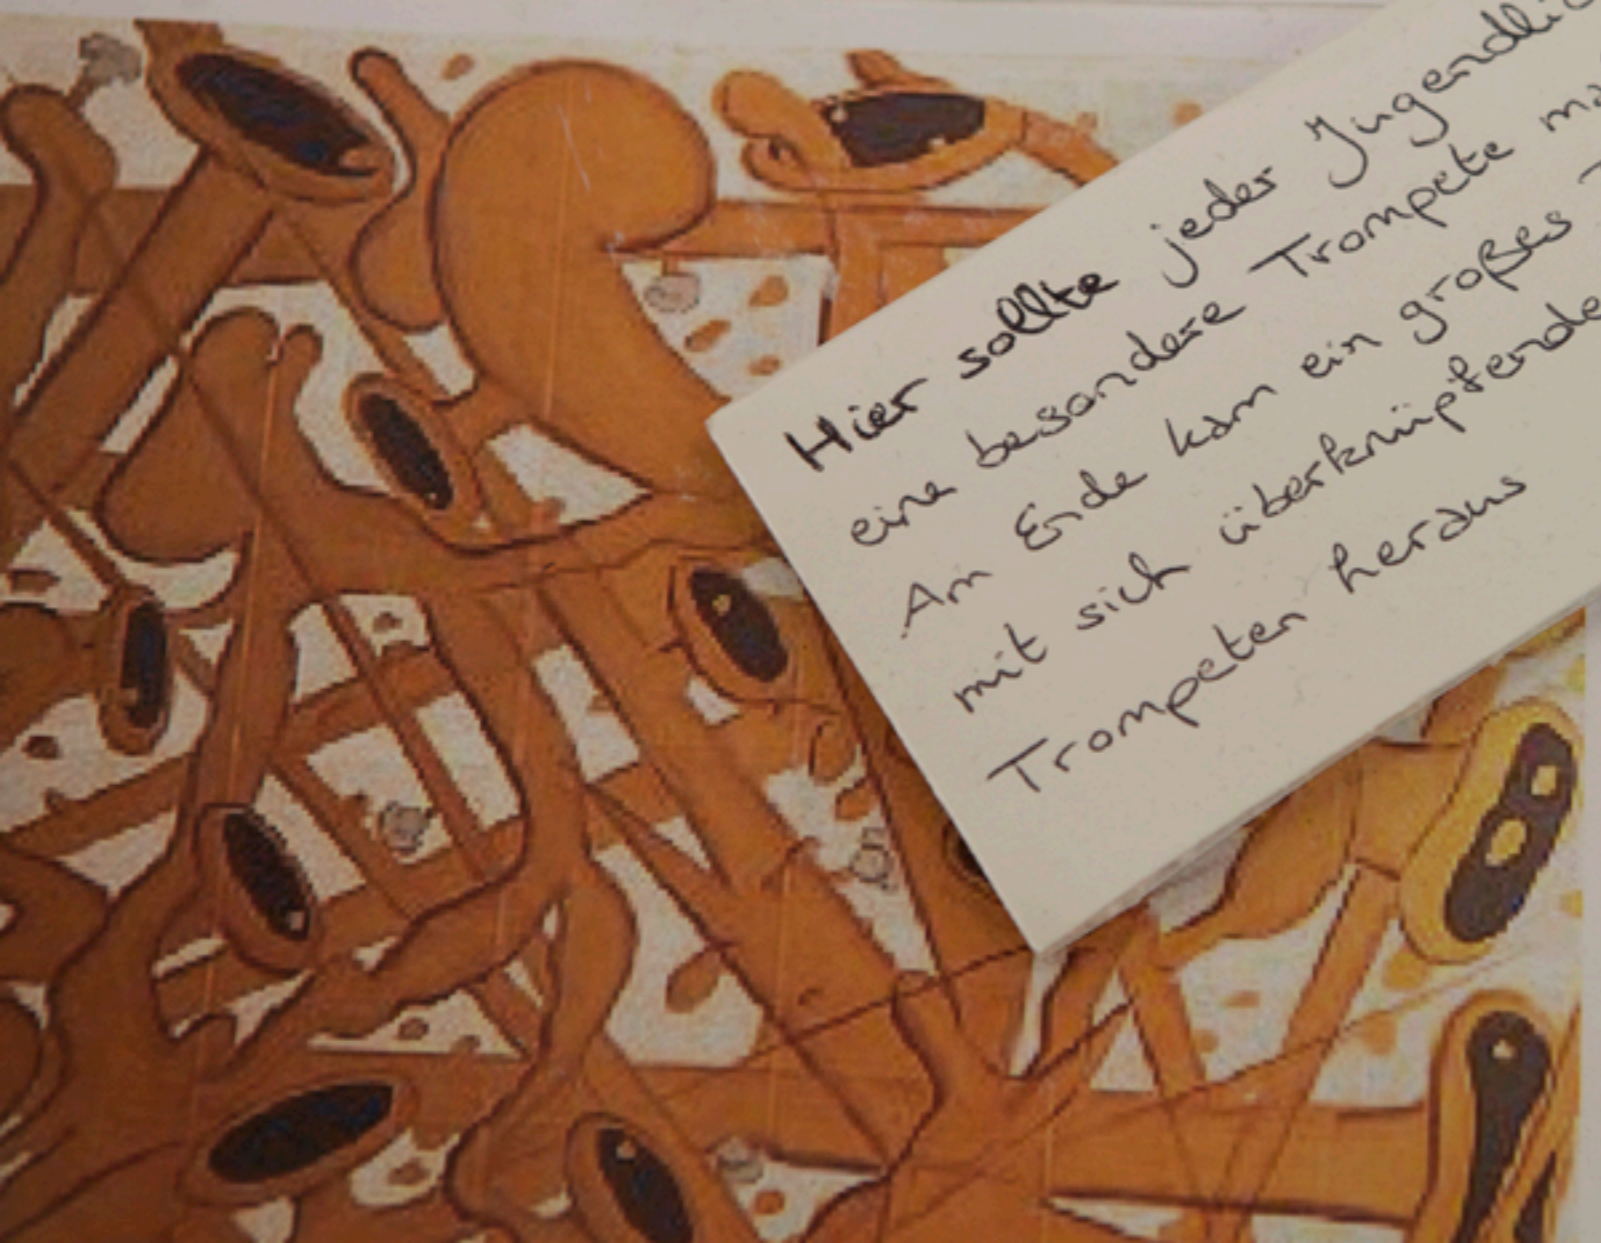 Hier sollte jeder Jugendlic
eine besondere Trompete ma
Am Ende kam ein großes
mit sich überknüpfende
Trompeten heraus